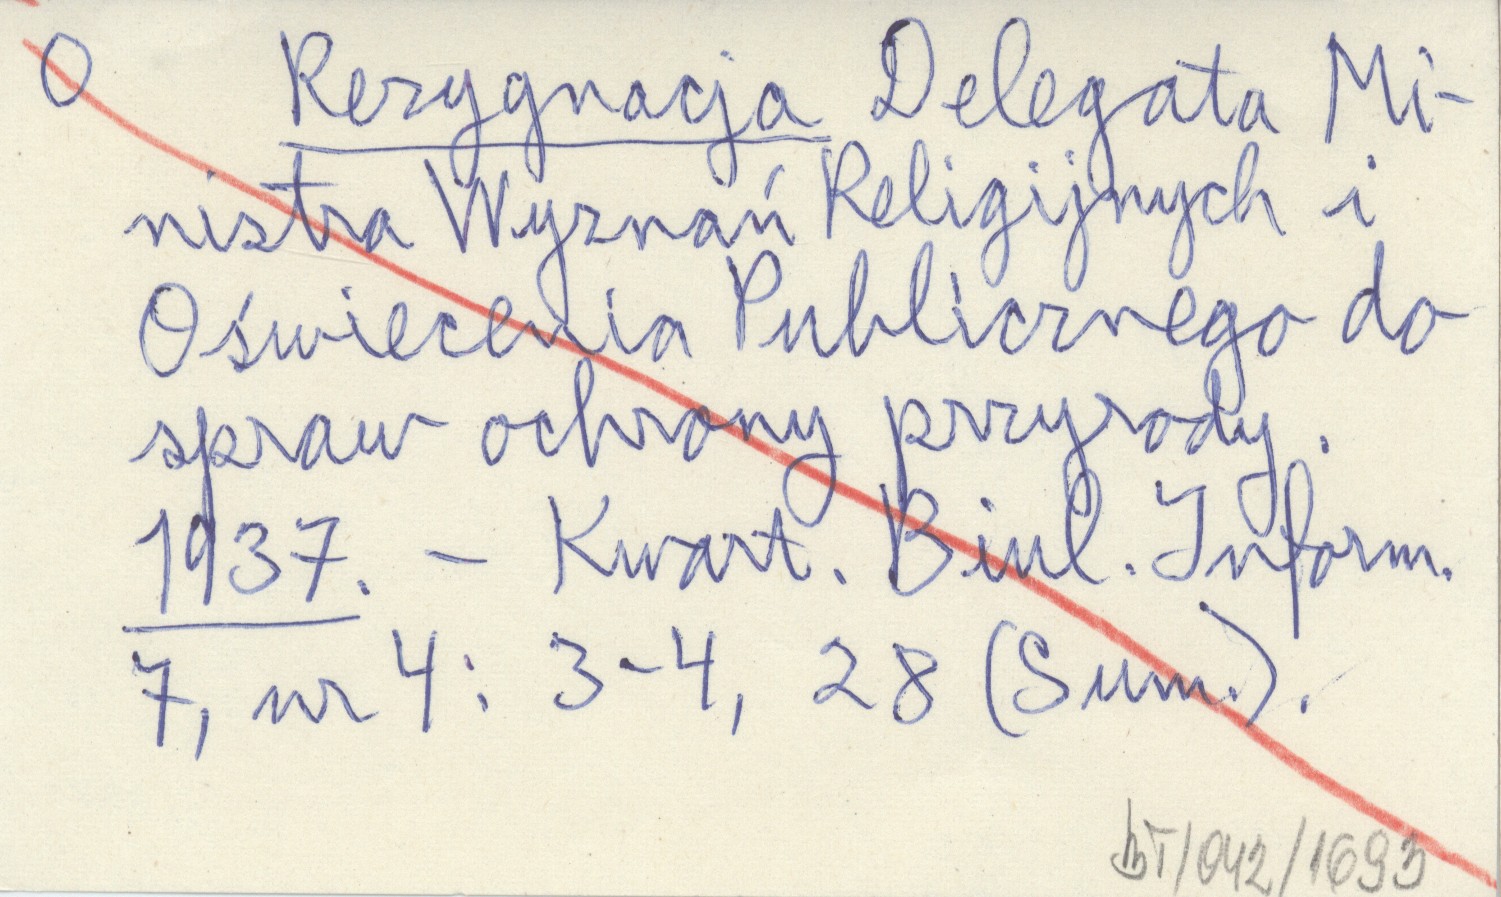 O Rezygnacja Delegata Mi-
nistra Wyznań Religijnych i
Oświecenia Publicznego do
spraw ochrony przyrody.
1937. - Kwart. Biul. Inform.
7, nr 4: 3-4, 28 (Sum.).
BT/042/1693